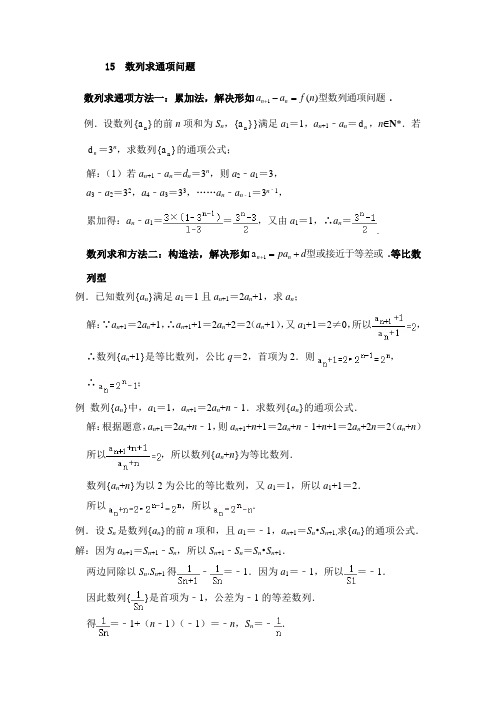 15 数列求通项问题
数列求通项方法一：累加法，解决形如aₙ₊₁−aₙ=f(n)型数列通项问题．
例．设数列{aₙ}的前n项和为Sₙ，{aₙ}}满足a₁=1，aₙ₊₁﹣aₙ=dₙ，n∈N*．若
dₙ=3ⁿ，求数列{aₙ}的通项公式；
解：（1）若aₙ₊₁﹣aₙ=dₙ=3ⁿ，则a₂﹣a₁=3，
a₃﹣a₂=3²，a₄﹣a₃=3³，……aₙ﹣aₙ₋₁=3ⁿ⁻¹，
累加得：aₙ﹣a₁=3×(1-3ⁿ⁻¹)/(1-3)=(3ⁿ-3)/2，又由a₁=1，∴aₙ=(3ⁿ-1)/2．
数列求和方法二：构造法，解决形如aₙ₊₁=paₙ+d型或接近于等差或．等比数
列型
例．已知数列{aₙ}满足a₁=1且aₙ₊₁=2aₙ+1，求aₙ；
解：∵aₙ₊₁=2aₙ+1，∴aₙ₊₁+1=2aₙ+2=2（aₙ+1），又a₁+1=2≠0，所以(aₙ₊₁+1)/(aₙ+1)=2，
∴数列{aₙ+1}是等比数列，公比q=2，首项为2．则aₙ+1=2•2ⁿ⁻¹=2ⁿ，
∴aₙ=2ⁿ-1；
例 数列{aₙ}中，a₁=1，aₙ₊₁=2aₙ+n﹣1．求数列{aₙ}的通项公式．
解：根据题意，aₙ₊₁=2aₙ+n﹣1，则aₙ₊₁+n+1=2aₙ+n﹣1+n+1=2aₙ+2n=2（aₙ+n）
所以(aₙ₊₁+n+1)/(aₙ+n)=2，所以数列{aₙ+n}为等比数列．
数列{aₙ+n}为以2为公比的等比数列，又a₁=1，所以a₁+1=2．
所以aₙ+n=2•2ⁿ⁻¹=2ⁿ，所以aₙ=2ⁿ-n．
例．设Sₙ是数列{aₙ}的前n项和，且a₁=﹣1，aₙ₊₁=Sₙ•Sₙ₊₁,求{aₙ}的通项公式．
解：因为aₙ₊₁=Sₙ₊₁﹣Sₙ，所以Sₙ₊₁﹣Sₙ=Sₙ•Sₙ₊₁．
两边同除以Sₙ.Sₙ₊₁得1/Sn+1﹣1/Sn=﹣1．因为a₁=﹣1，所以1/S1=﹣1．
因此数列{1/Sn}是首项为﹣1，公差为﹣1的等差数列．
得1/Sn=﹣1+（n﹣1）（﹣1）=﹣n，Sₙ=﹣1/n．